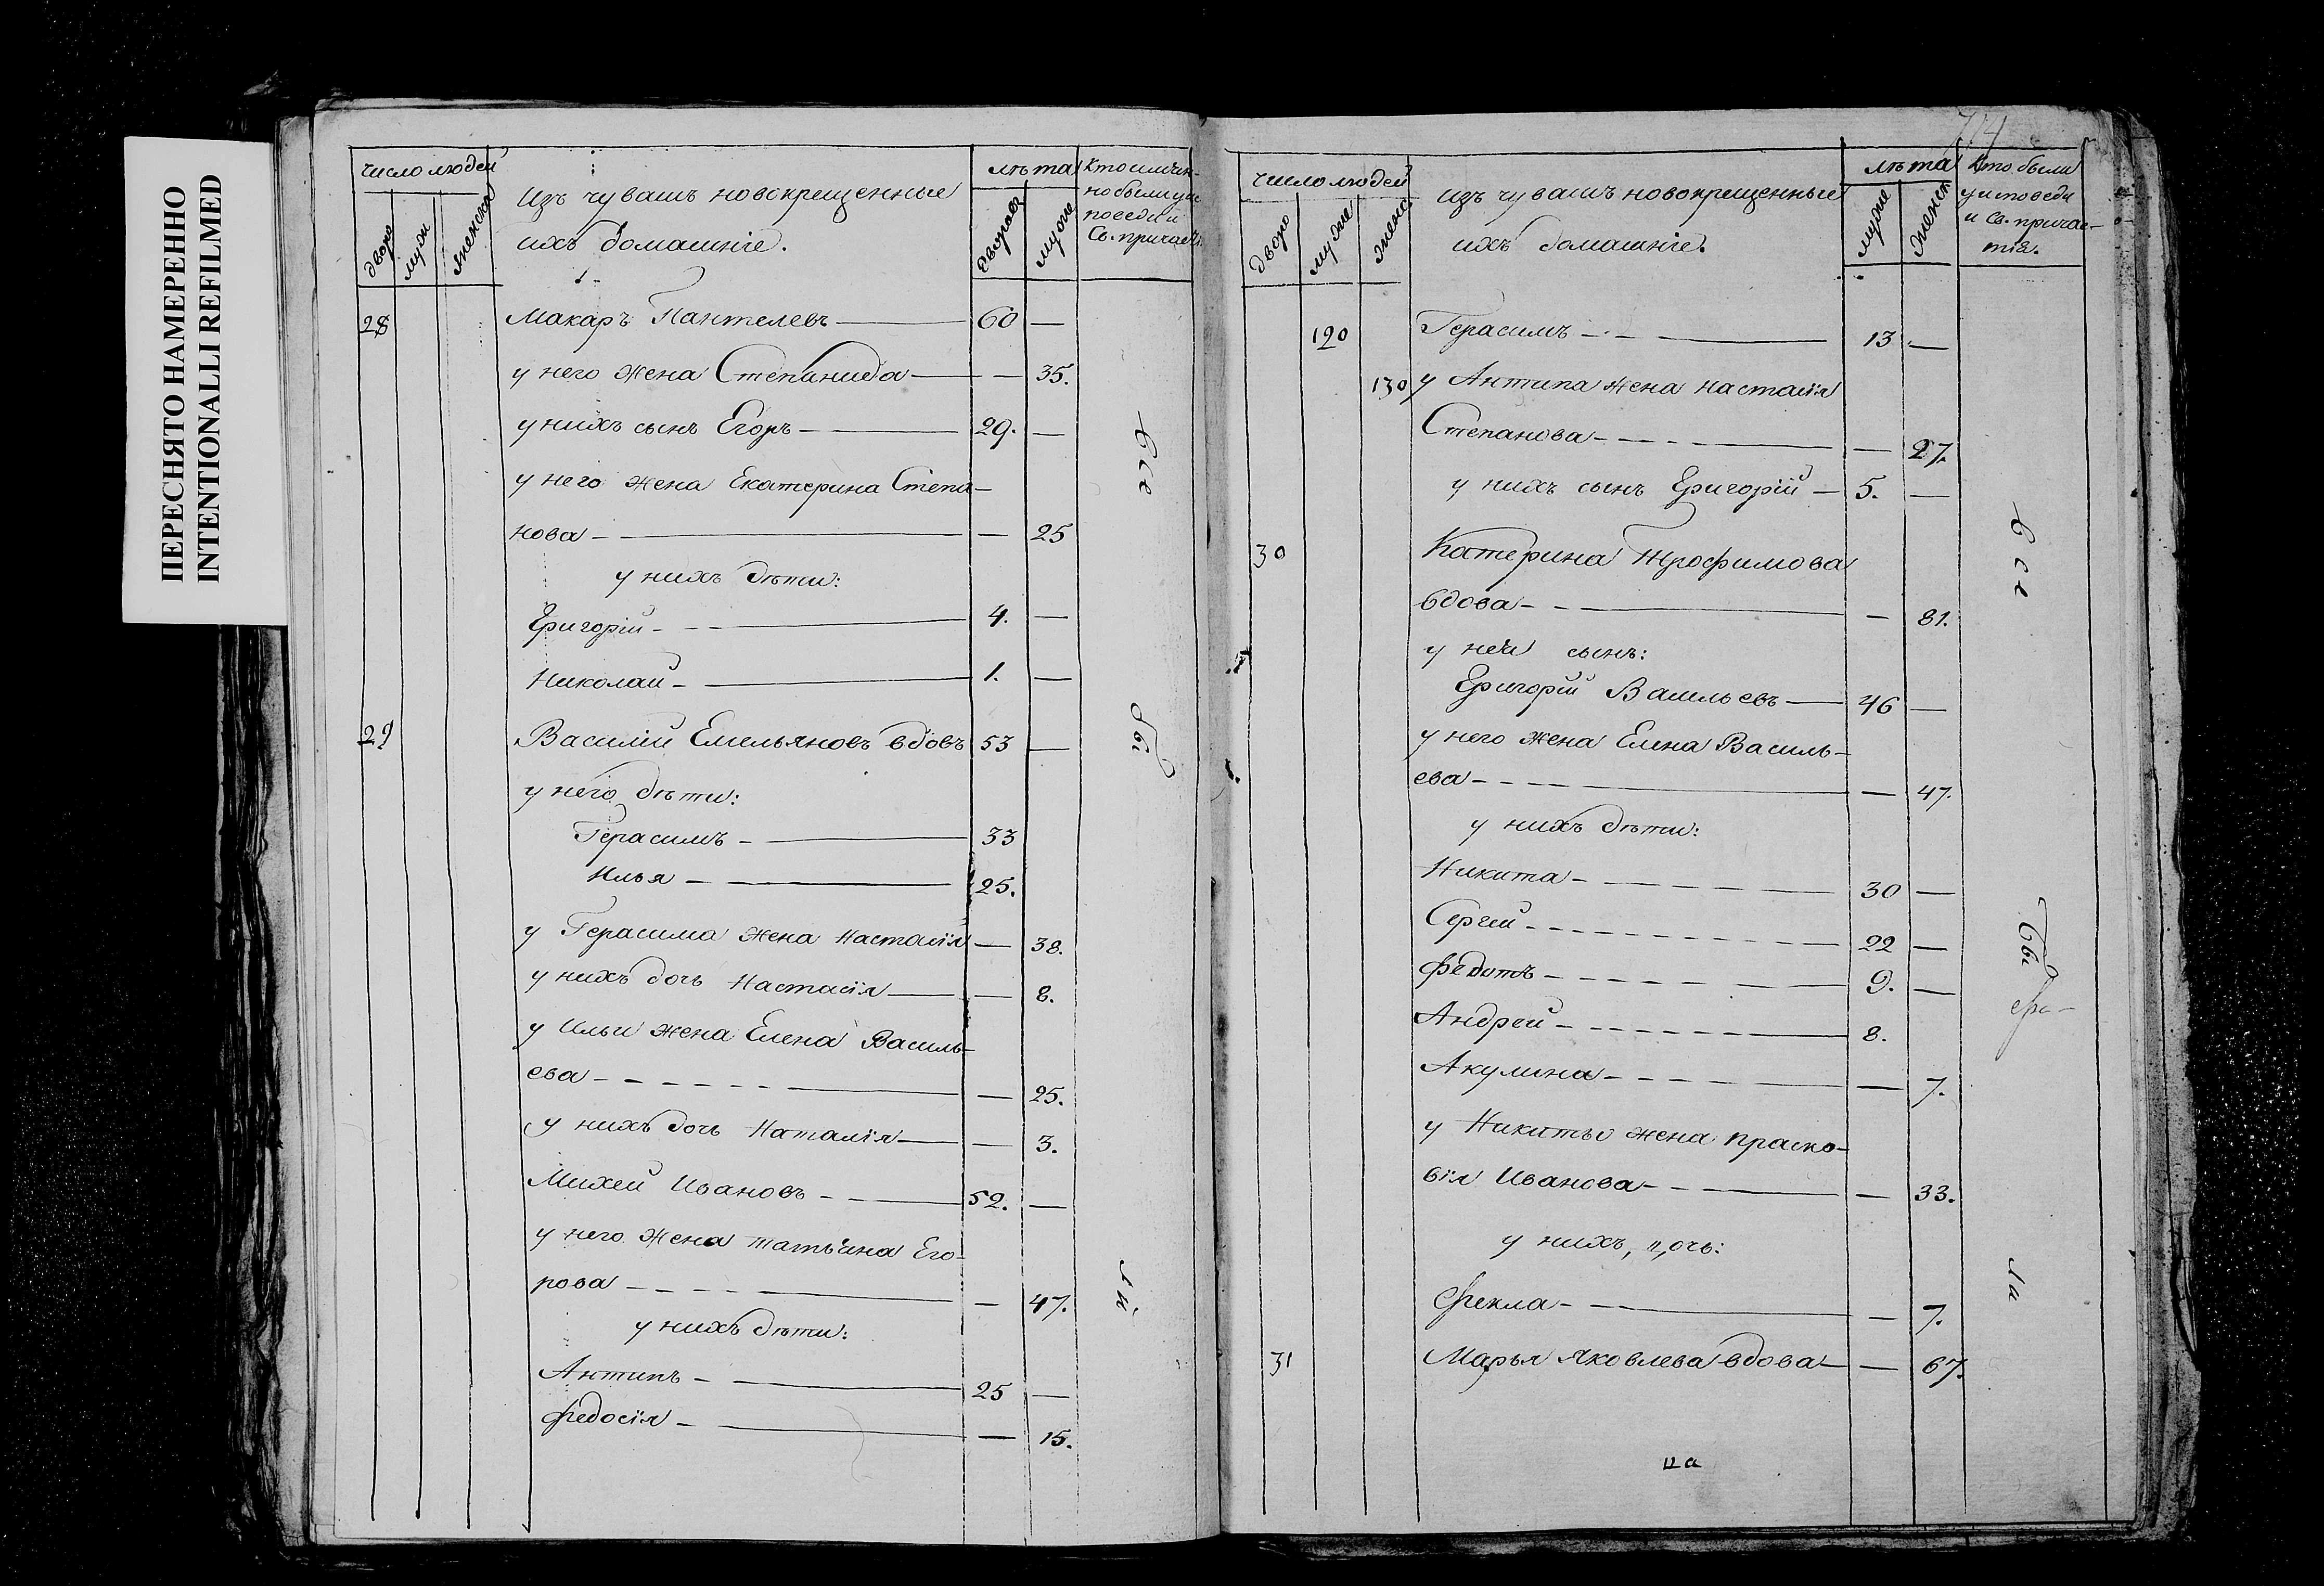 ПЕРЕСНЯТО НАМЕРЕННО
INTENTIONALLI REFILMED
число людей
дворо
муж
женска
Изъ чувашъ новокрещенные
ихъ домашніе.
лѣта
дворовъ
муже
Св. причаст
28 Макаръ Пантелевъ — 60 —
у него жена Степанида — — 35.
у нихъ сынъ Егоръ — 29. —
у него жена Екатерина Степа-
нова — — 25
у нихъ дѣти:
Григорій — 4. —
Николай — 1. —
29 Василій Емельяновъ вдовъ 53 —
у него дѣти:
Герасимъ — 33
Илья — 25.
у Герасима жена Настасія — 38.
у нихъ дочь Настасія — — 8.
у Ильи жена Елена Василь-
ева — — 25.
у нихъ дочь Наталія — — 3.
Михей Ивановъ — 52. —
у него жена татьяна Его-
рова — — 47.
у нихъ дѣти:
Антипъ — 25 —
Федосія — — 15.
всѣ
бы
ли
число людей
дворо
муже
женс
изъ чувашъ новокрещенные
ихъ домашніе.
лѣта
муже
женск
Кто были
у исповеди
и Св. причас-
тія.
120 Герасимъ — 13 —
130 у Антипа жена настасія
Степанова — — 27.
у нихъ сынъ Григорій — 5. —
30 Катерина Трофимова
вдова — — 81.
у ней сынъ:
Григорій Васильевъ — 46 —
у него жена Елена Василь-
ева — — 47.
у нихъ дѣти:
Никита — 30 —
Сергей — 22 —
Федотъ — 9. —
Андрей — 8.
Акулина — — 7.
у Никиты жена праско-
вія Иванова — — 33.
у нихъ дочь:
Фекла — — 7.
31 Марья Яковлева вдова — — 67.
всѣ
бы
ли